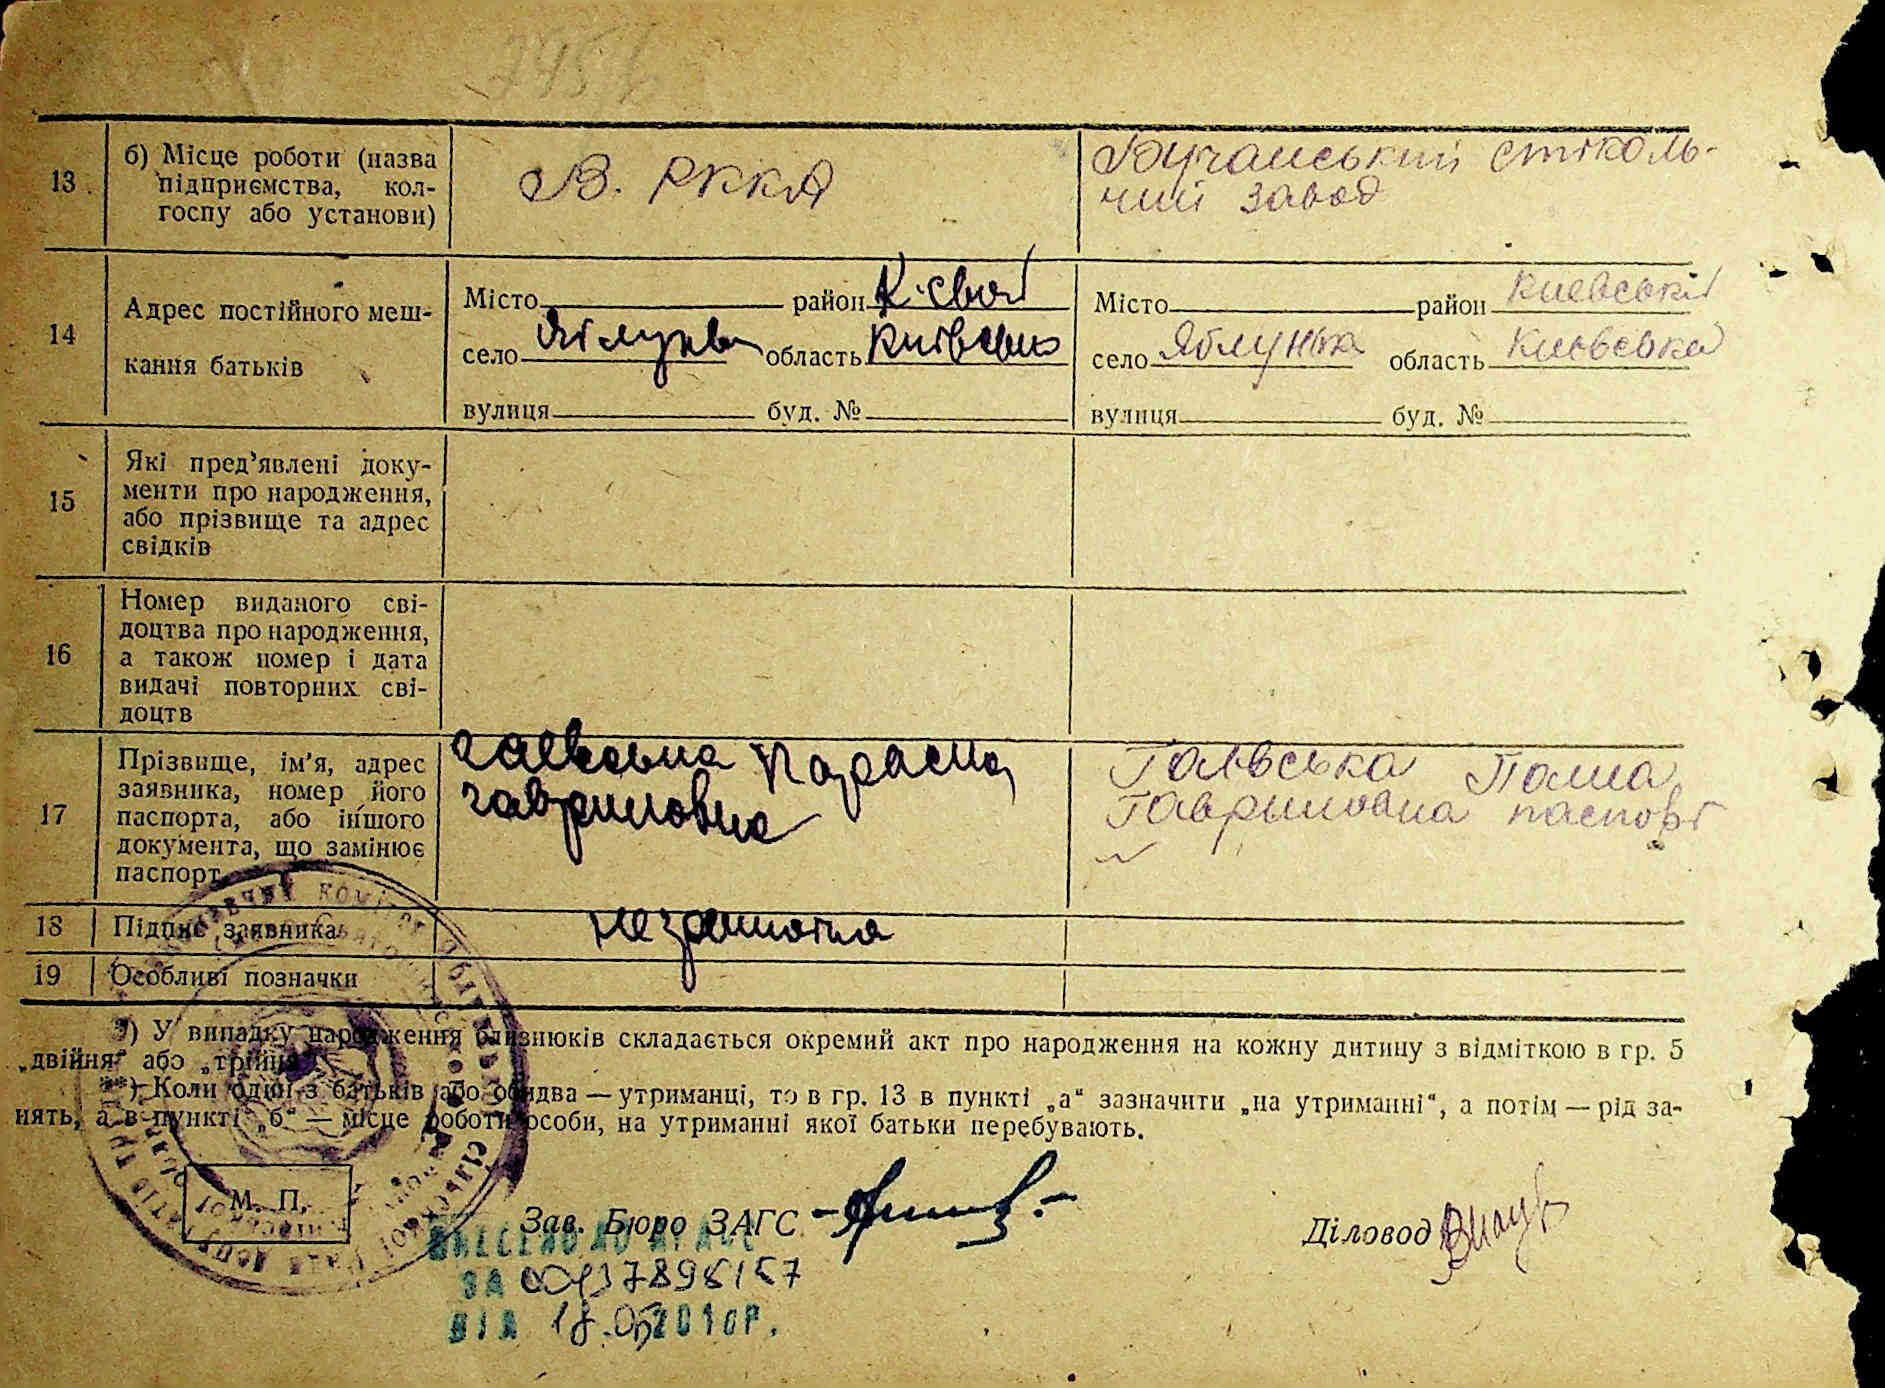 13
б) Місце роботи (назва
підприємства, кол-
госпу або установи)
В. РККА
Бучанський стіколь-
ний завод
14
Адрес постійного меш-
кання батьків
Місто район
село область Київська
вулиця буд. №
Місто район Киевській
село Яблунька область Киевська
вулиця буд. №
15
Які пред’явлені доку-
менти про народження,
або прізвище та адрес
свідків
16
Номер виданого сві-
доцтва про народження,
а також номер і дата
видачі повторних сві-
доцтв
17
Прізвище, ім’я, адрес
заявника, номер його
паспорта, або іншого
документа, що замінює
паспорт
Параска
гавриловна
Галєвська
Гаврыловна паспорт
18
Підпис заявника
неграмотна
19
Особливі позначки
*) У випадку народження близнюків складається окремий акт про народження на кожну дитину з відміткою в гр. 5
„двійня“ або „трійня“.
**) Коли один з батьків або обидва — утриманці, то в гр. 13 в пункті „а“ зазначити „на утриманні“, а потім — рід за-
нять, а в пункті „б“ — місце роботи особи, на утриманні якої батьки перебувають.
М. П.
Зав. Бюро ЗАГС
Діловод
ВНЕСЕНО ДО ДРАЦС
ЗА
ВІД 18.05 2010Р.